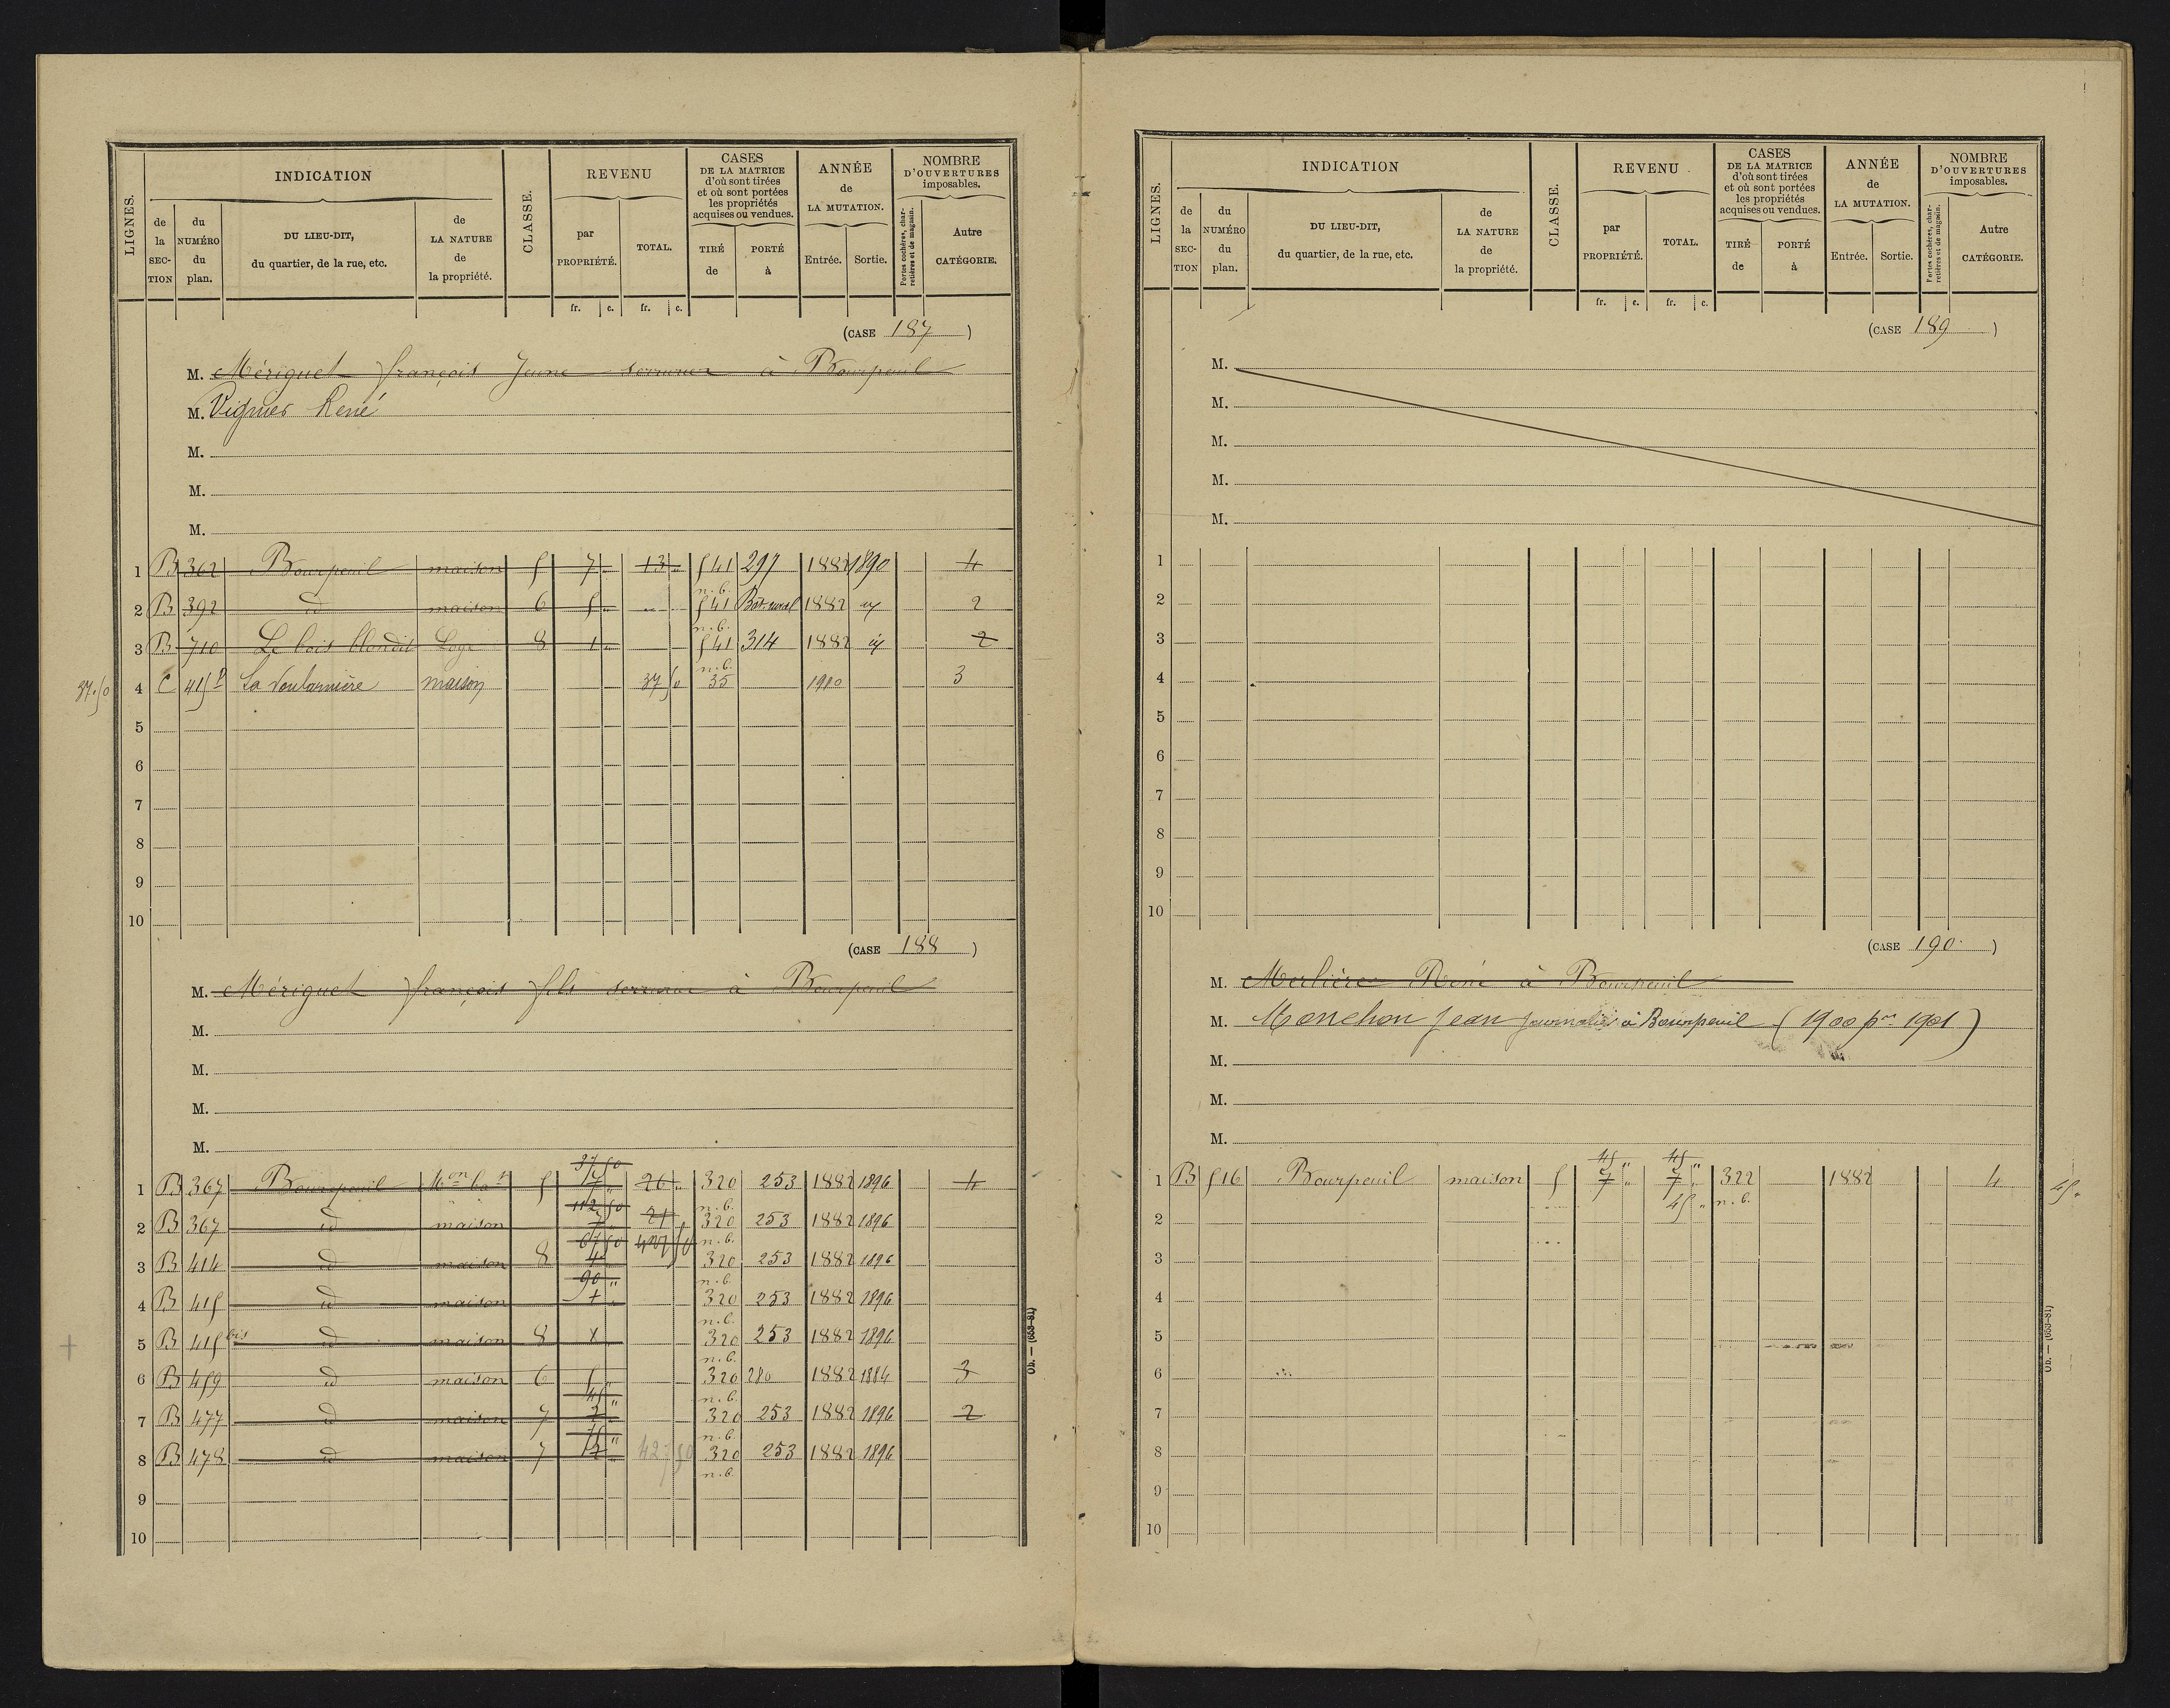 LIGNES.
INDICATION
de la SECTION
du NUMÉRO du plan.
DU LIEU-DIT, du quartier, de la rue, etc.
de LA NATURE de la propriété.
CLASSE.
REVENU
par PROPRIÉTÉ.
TOTAL.
CASES DE LA MATRICE d'où sont tirées et où sont portées les propriétés acquises ou vendues.
TIRÉ de
PORTÉ à
ANNÉE de LA MUTATION.
Entrée.
Sortie.
NOMBRE D'OUVERTURES imposables.
Portes cochères, charretières et de magasin.
Autre CATÉGORIE.
fr. c. fr. c.
(CASE 187)
M. Mériguet françois Jeune serrurier à Bourpeuil
M. Vignier René
M.
M.
M.
1 B 362 Bourpeuil maison 5 7 " 13 " 541 n.b. 297 1882 1890 4
2 B 392 id maison 6 5 " 541 n.b. Bât. rural 1882 2
3 B 710 Le bois blondit Loge 8 1 " 541 n.b. 314 1882 2
37.50 4 C 415 p maison 37 50 35 1910 3
5
6
7
8
9
10
(CASE 188)
M. Mériguet françois fils serrurier à Bourpeuil
M.
M.
M.
M.
1 B 367 Bourpeuil 5 37 50 26 " 320 n.b. 253 1882 1896 4
2 B 367 id maison 112 50 7 21 320 n.b. 253 1882 1896
3 B 414 id maison 8 67 50 4 320 n.b. 253 1882 1896
4 B 415 id maison 90 " 320 n.b. 253 1882 1896
5 B 415 bis id maison 8 320 n.b. 253 1882 1896
6 B 459 id maison 6 5 320 n.b. 280 1882 1884 3
7 B 477 id maison 7 45 " 320 n.b. 253 1882 1896 2
8 B 478 id maison 7 75 " 427 50 320 n.b. 253 1882 1896
9
10
Ob. — (653-81)
LIGNES.
INDICATION
de la SECTION
du NUMÉRO du plan.
DU LIEU-DIT, du quartier, de la rue, etc.
de LA NATURE de la propriété.
CLASSE.
REVENU
par PROPRIÉTÉ.
TOTAL.
CASES DE LA MATRICE d'où sont tirées et où sont portées les propriétés acquises ou vendues.
TIRÉ de
PORTÉ à
ANNÉE de LA MUTATION.
Entrée.
Sortie.
NOMBRE D'OUVERTURES imposables.
Portes cochères, charretières et de magasin.
Autre CATÉGORIE.
fr. c. fr. c.
(CASE 189)
M.
M.
M.
M.
M.
1
2
3
4
5
6
7
8
9
10
(CASE 190)
M. Merlière René à Bourpeuil
M. Monchon Jean journalier à Bourpeuil (1900 pr 1901)
M.
M.
M.
1 B 516 Bourpeuil maison 5 45 " 7 " 45 " 7 " 322 n.b. 1882 4 45 "
2 45 "
3
4
5
6
7
8
9
10
Ob. — (653-81)